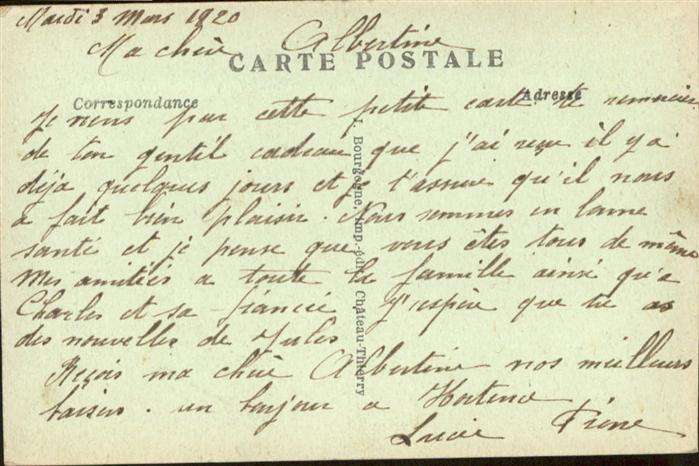 Mardi 3 Mars 1920
Ma chère Albertine
CARTE POSTALE
Correspondance
Adresse
Je viens par cette petite carte te remercier
de ton gentil cadeau que j'ai reçu il y a
déja quelques jours et je t'assure qu'il nous
a fait bien plaisir. Nous sommes en bonne
santé et je pense que vous êtes tous de même
Mes amitiés a toute la famille ainsi qu'a
Charles et sa fiancée J'espère que tu as
des nouvelles de Jules
Reçois ma chère Albertine nos meilleurs
baisers. un bonjour a Hortence
Lucie
J. Bourgogne, imp.-édit. Château-Thierry